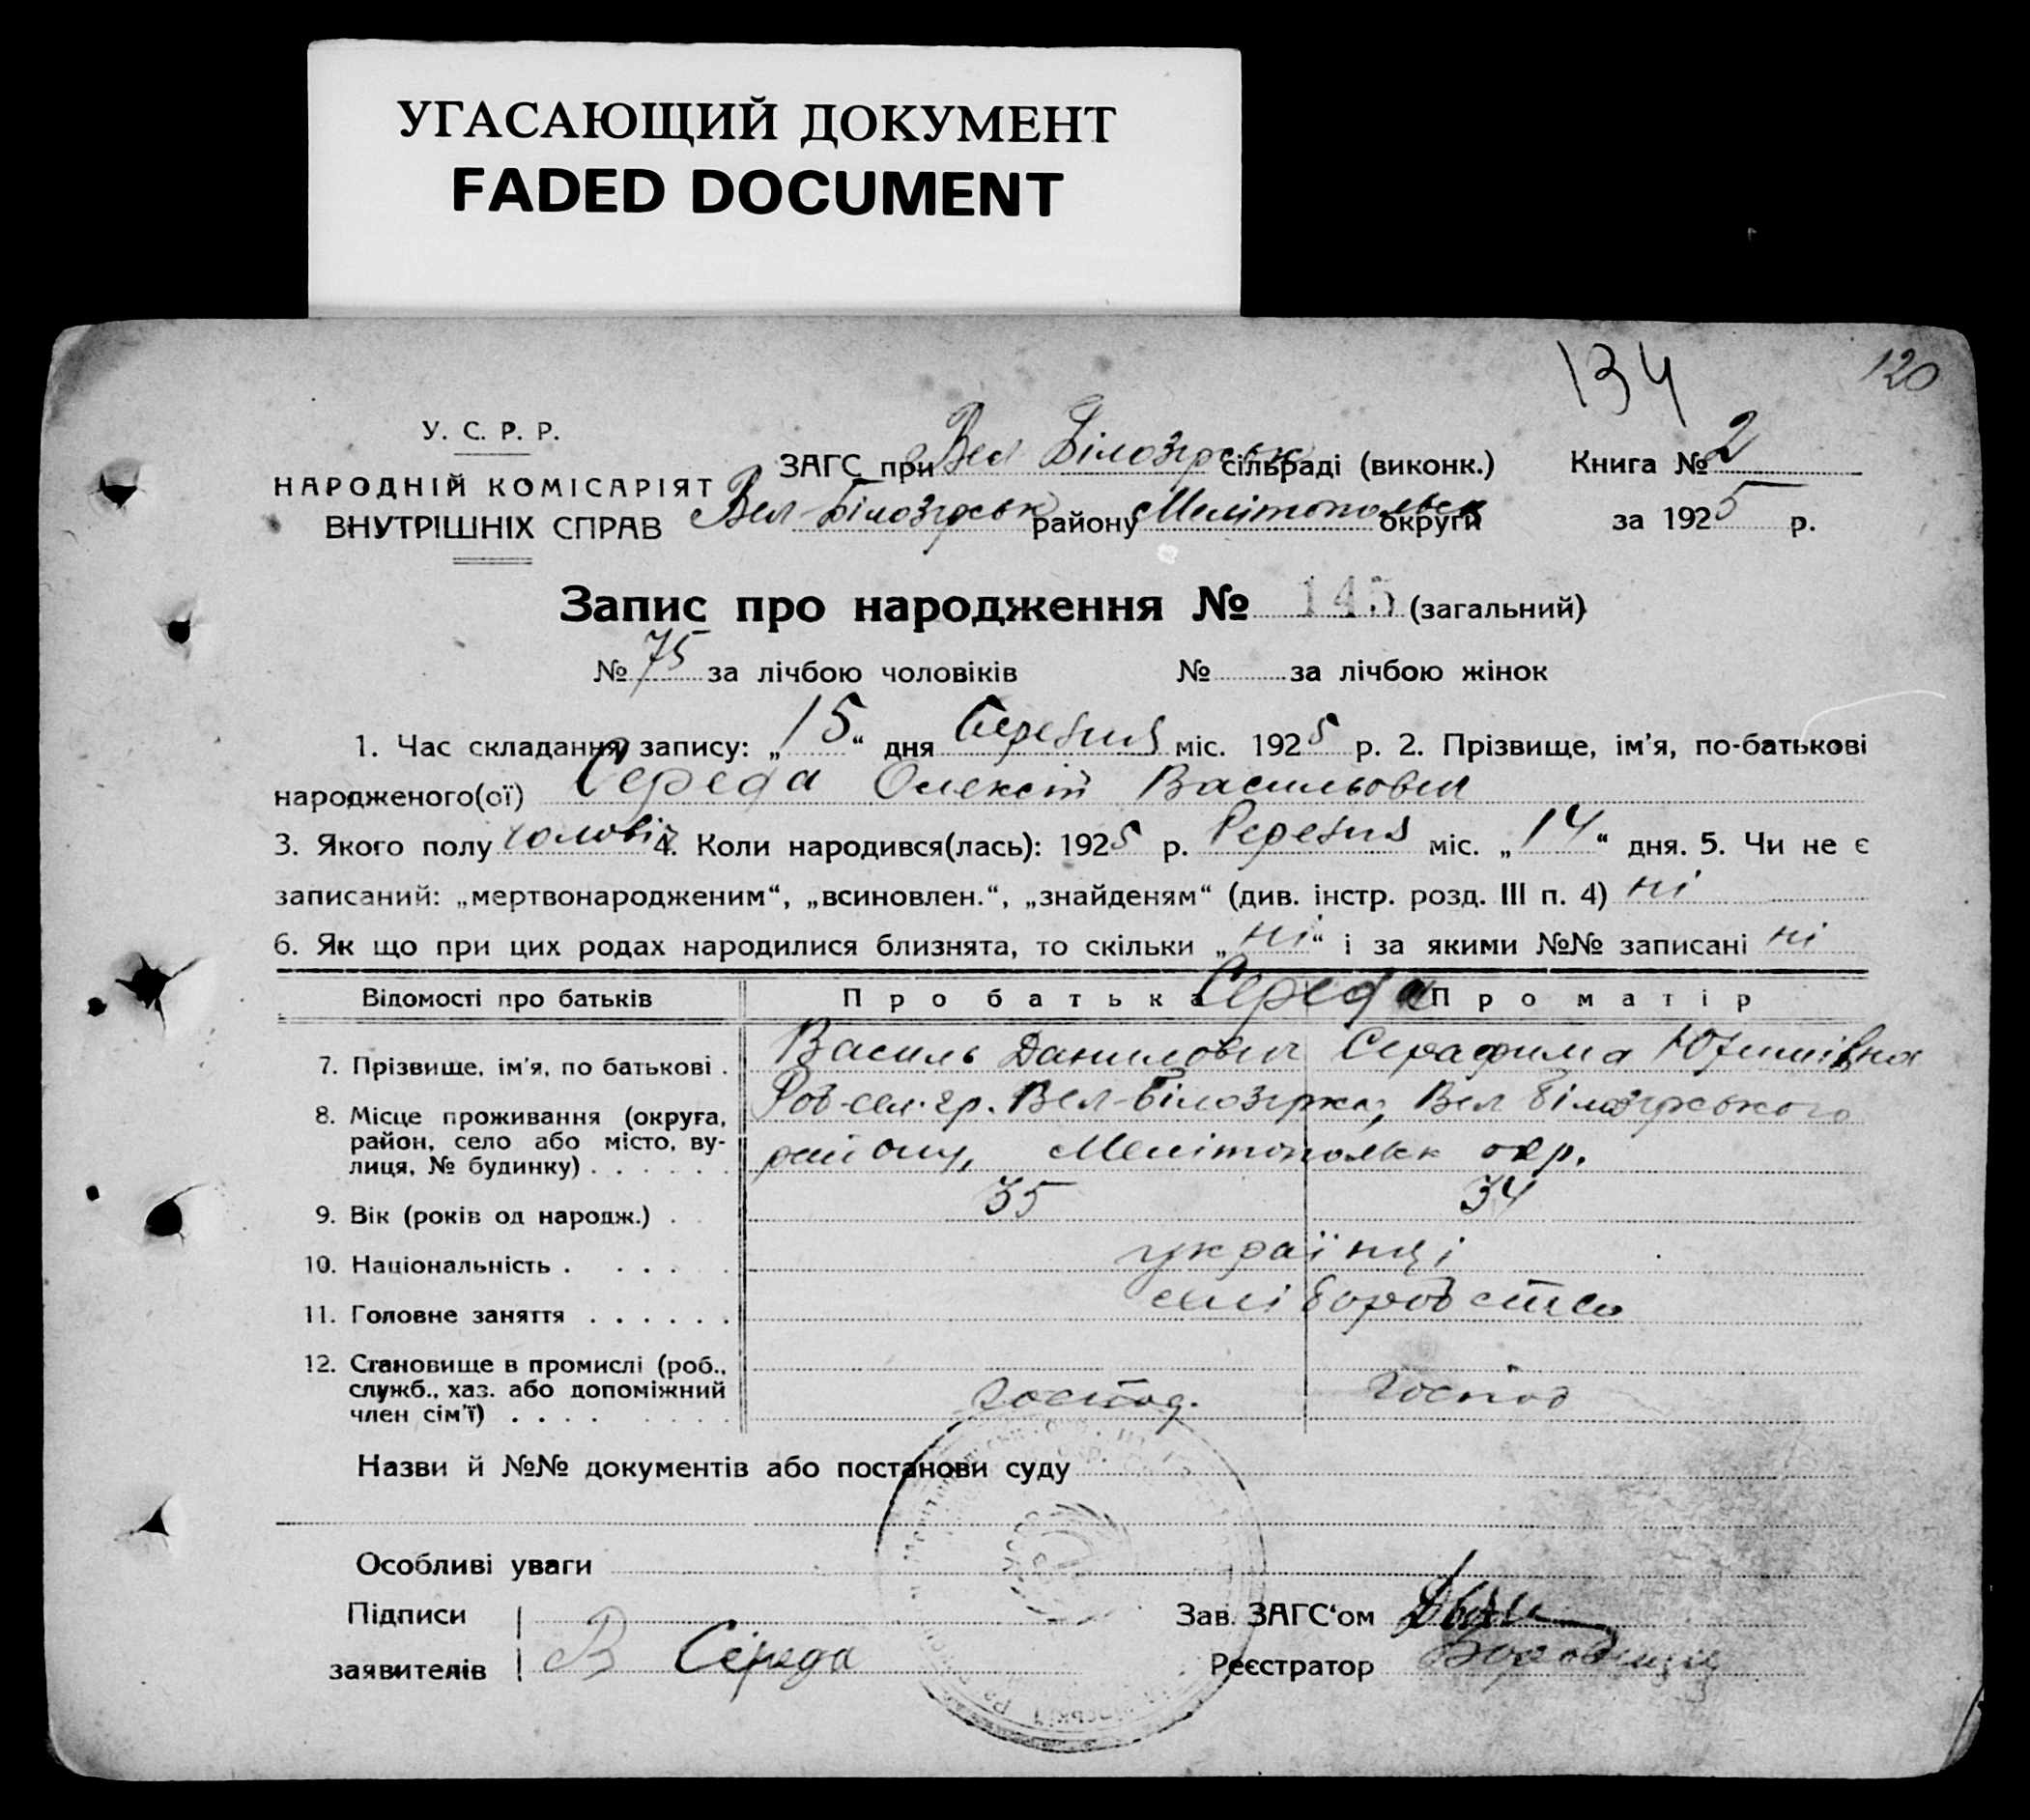 УГАСАЮЩИЙ ДОКУМЕНТ
FADED DOCUMENT
134
120
У. С. Р. Р.
НАРОДНІЙ КОМІСАРІЯТ
ВНУТРІШНІХ СПРАВ
ЗАГС при Вел Білозірськ сільраді (виконк.)
Книга № 2
Вел-Білозірськ району Мелітопольськ округи
за 1925 р.
Запис про народження № 145 (загальний)
№ 75 за лічбою чоловіків № за лічбою жінок
1. Час складання запису: „15“ дня березня міс. 1925 р. 2. Прізвище, ім'я, по-батькові
народженого(ої) Середа Олексій Васильович
3. Якого полу чоловіч 4. Коли народився(лась): 1925 р. березня міс. „14“ дня. 5. Чи не є
записаний: „мертвонародженим“, „всиновлен.“, „знайденям“ (див. інстр. розд. III п. 4) ні
6. Як що при цих родах народилися близнята, то скільки „ні“ і за якими №№ записані ні
Відомості про батьків Про батька Середа Про матір
7. Прізвище, ім'я, по батькові . Василь Данилович Серафима Юхимівна
8. Місце проживання (округа, район, село або місто, вулиця, № будинку) . . . . . . Вел-Білозірка, Вел Білозірського
району, Мелітопольськ окр.
9. Вік (років од народж.) . 35 34
10. Національність . . . . українці
11. Головне заняття . . . . . . хліборобство
12. Становище в промислі (роб., служб., хаз. або допоміжний член сім'ї) . . . . господ. господ
Назви й №№ документів або постанови суду
Особливі уваги
Підписи
заявителів В Середа
Зав. ЗАГС'ом
Реєстратор